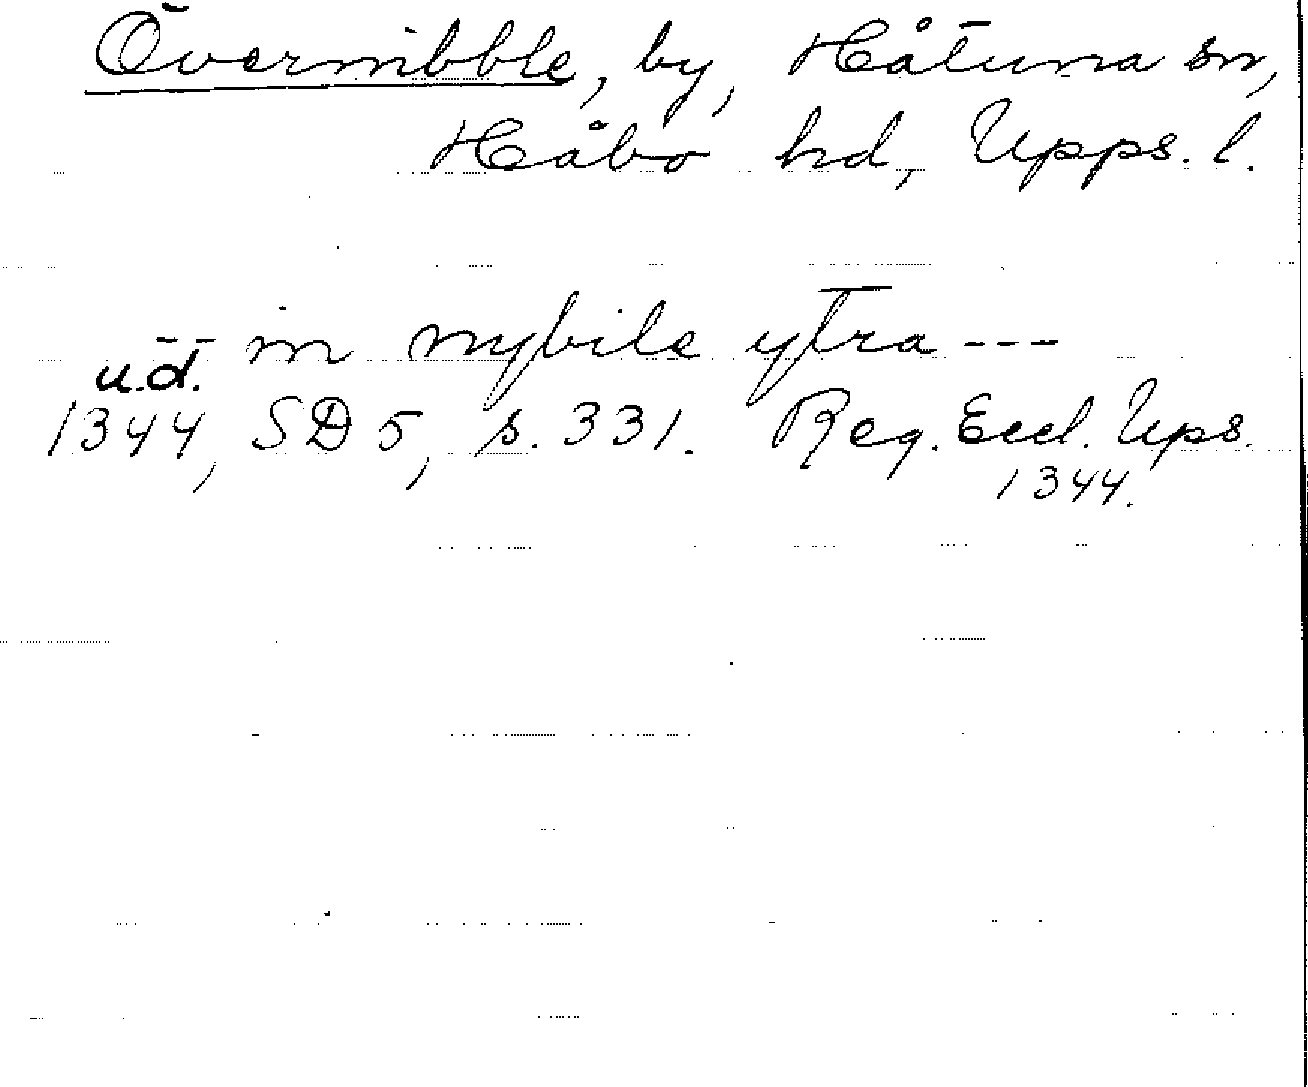 Övernibble, by, Håtuna sn,
Håbo hd, Upps. l.
-- in nybile ytra ---
u.d.
1344, SD 5, s. 331. Reg. Eccl. Ups.
1344.